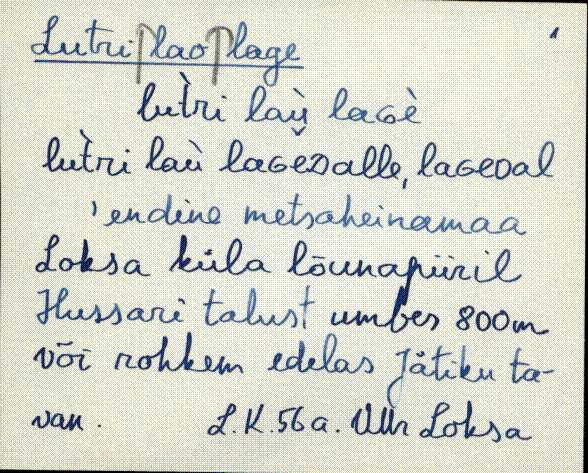 Lutri lao lage 1
lut̀ri laù laGè
lut̀ri laù laGèDalle, laGeDal
, endine metsaheinamaa
Loksa küla lõunapiiril
Hussari talust umbes 800m
või rohkem edelas Jätiku ta-
van. L.K. 56 a. Loksa